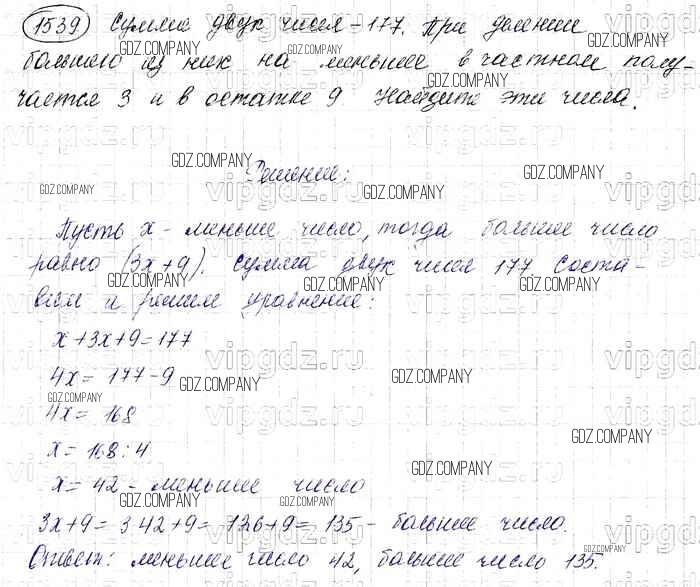 1539 Сумма двух чисел - 177. При делении
большего из них на меньшее в частном полу-
чается 3 и в остатке 9 Найдите эти числа.
Решение:
Пусть x - меньше число, тогда больше число
равно (3x+9). Сумма двух чисел 177. Соста-
вим и решим уравнение:
x+3x+9=177
4x= 177-9
4x= 168
x= 168:4
x= 42 - меньшее число
3x+9= 3 42+9= 126+9= 135 - большее число.
Ответ: меньшее число 42, большее число 135.
GDZ.COMPANY
vipgdz.ru